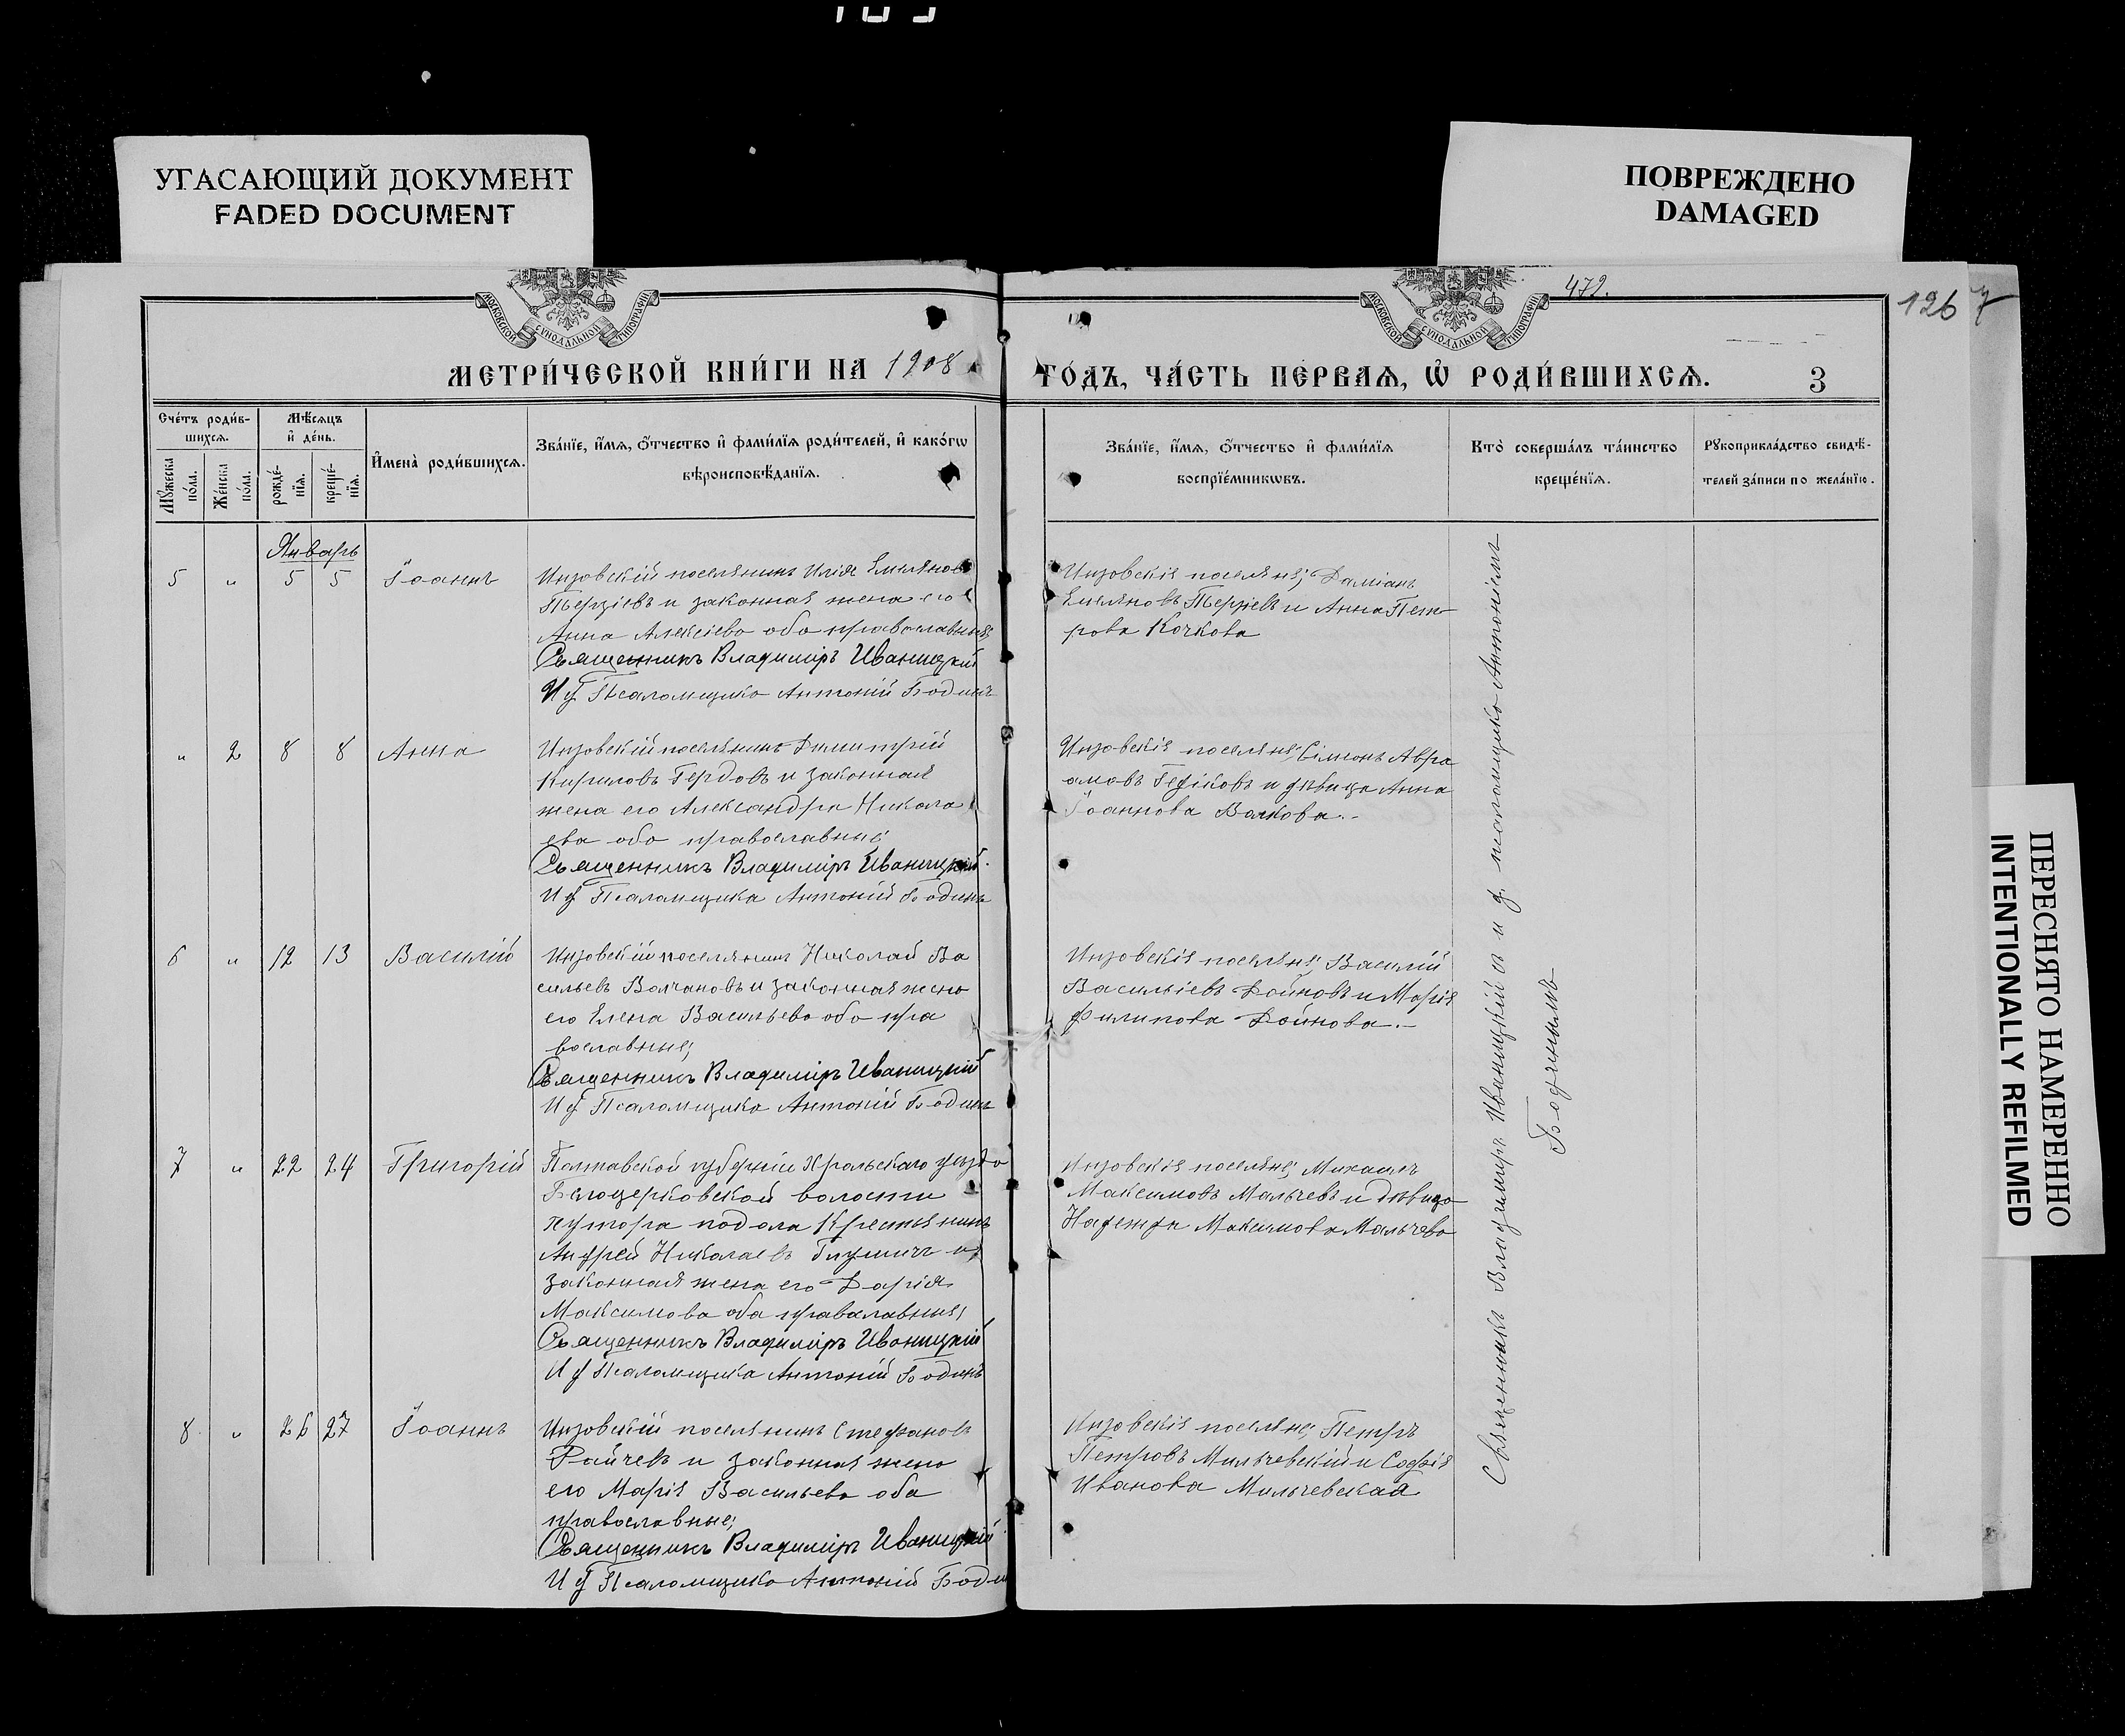 УГАСАЮЩИЙ ДОКУМЕНТ
FADED DOCUMENT
ПОВРЕЖДЕНО
DAMAGED
МОСКОВСКОЙ СѴНОДАЛЬНОЙ ТИПОГРАФІИ
МОСКОВСКОЙ СѴНОДАЛЬНОЙ ТИПОГРАФІИ
472.
126
7
МЕТРИ́ЧЕСКОЙ КНИ́ГИ НА 1908
ГО́ДЪ, ЧА́СТЬ ПЕ́РВАѦ, Ѽ РОДИ́ВШИХСѦ.
3
Сче́тъ роди́в-
шихсѧ.
Мѣ́сѧцъ
и҆ де́нь.
Мꙋ́жеска по́ла.
Же́нска по́ла.
рожде́-
нїѧ.
креще́-
нїѧ.
И҆мена̀ роди́вшихсѧ.
Зва́нїе, и҆́мѧ, ѻ҆́тчество и҆ фами́лїѧ роди́телей, и҆ како́гѡ
вѣроисповѣ́данїѧ.
Зва́нїе, и҆́мѧ, ѻ҆́тчество и҆ фами́лїѧ
воспрїе́мникѡвъ.
Кто̀ соверша́лъ та́инство
креще́нїѧ.
Рꙋкоприкла́дство свидѣ́-
телей за́писи по жела́нїю.
Январь
5 " 5 5 Іоаннъ
Инзовскій поселянинъ Илія Емеляновъ
Терзіевъ и законная жена его
Анна Алексіева оба православные;
Священникъ Владиміръ Иваницкій
И д Псаломщика Антоній Бодинъ
Инзовскія поселяне; Даміанъ
Емеляновъ Терзіевъ и Анна Пет-
рова Кочкова
" 2 8 8 Анна
Инзовскій поселянинъ Димитрій
Кириловъ Гердовъ и законная
жена его Александра Никола
ева оба православные;
Священникъ Владиміръ Иваницкій.
И д Псаломщика Антоній Бодинъ
Инзовскія поселяне; Сімеонъ Авра
амовъ и дѣвица Анна
Іоаннова Волкова.-
6 " 12 13 Василій
Инзовскій поселянинъ Николай Ва
сильевъ Волчановъ и законная жена
его Елена Васильева оба пра
вославные;
Священникъ Владиміръ Иваницкій
И д Псаломщика Антоній Бодинъ
Инзовскія поселяне; Василій
Васильіевъ Дойновъ и Марія
Филипова Дойнова.-
7 " 22 24 Григорій
Полтавской губерніи Хрольскаго уѣзда
Белоцерковской волости
хутора подола Крестьянинъ
Андрей Николаевъ и
законная жена его Дарія
Максимова оба православные;
Священникъ Владиміръ Иваницкій
И д Псаломщика Антоній Бодинъ
Инзовскія поселяне; Михаилъ
Максимовъ Мальчевъ и дѣвица
Надежда Максимова Мальчева
8 " 26 27 Іоаннъ
Инзовскій поселянинъ Стефановъ
Райчевъ и законная жена
его Марія Васильева оба
православные;
Священникъ Владиміръ Иваницкій
И д Псаломщика Антоній Боди
Инзовскія поселяне; Петръ
Петровъ Мильчевскій и Софія
Иванова Мильчевская
Священникъ Владимиръ Иваницкій съ и д. псаломщика Антоніемъ
Бодинымъ
ПЕРЕСНЯТО НАМЕРЕННО
INTENTIONALLY REFILMED